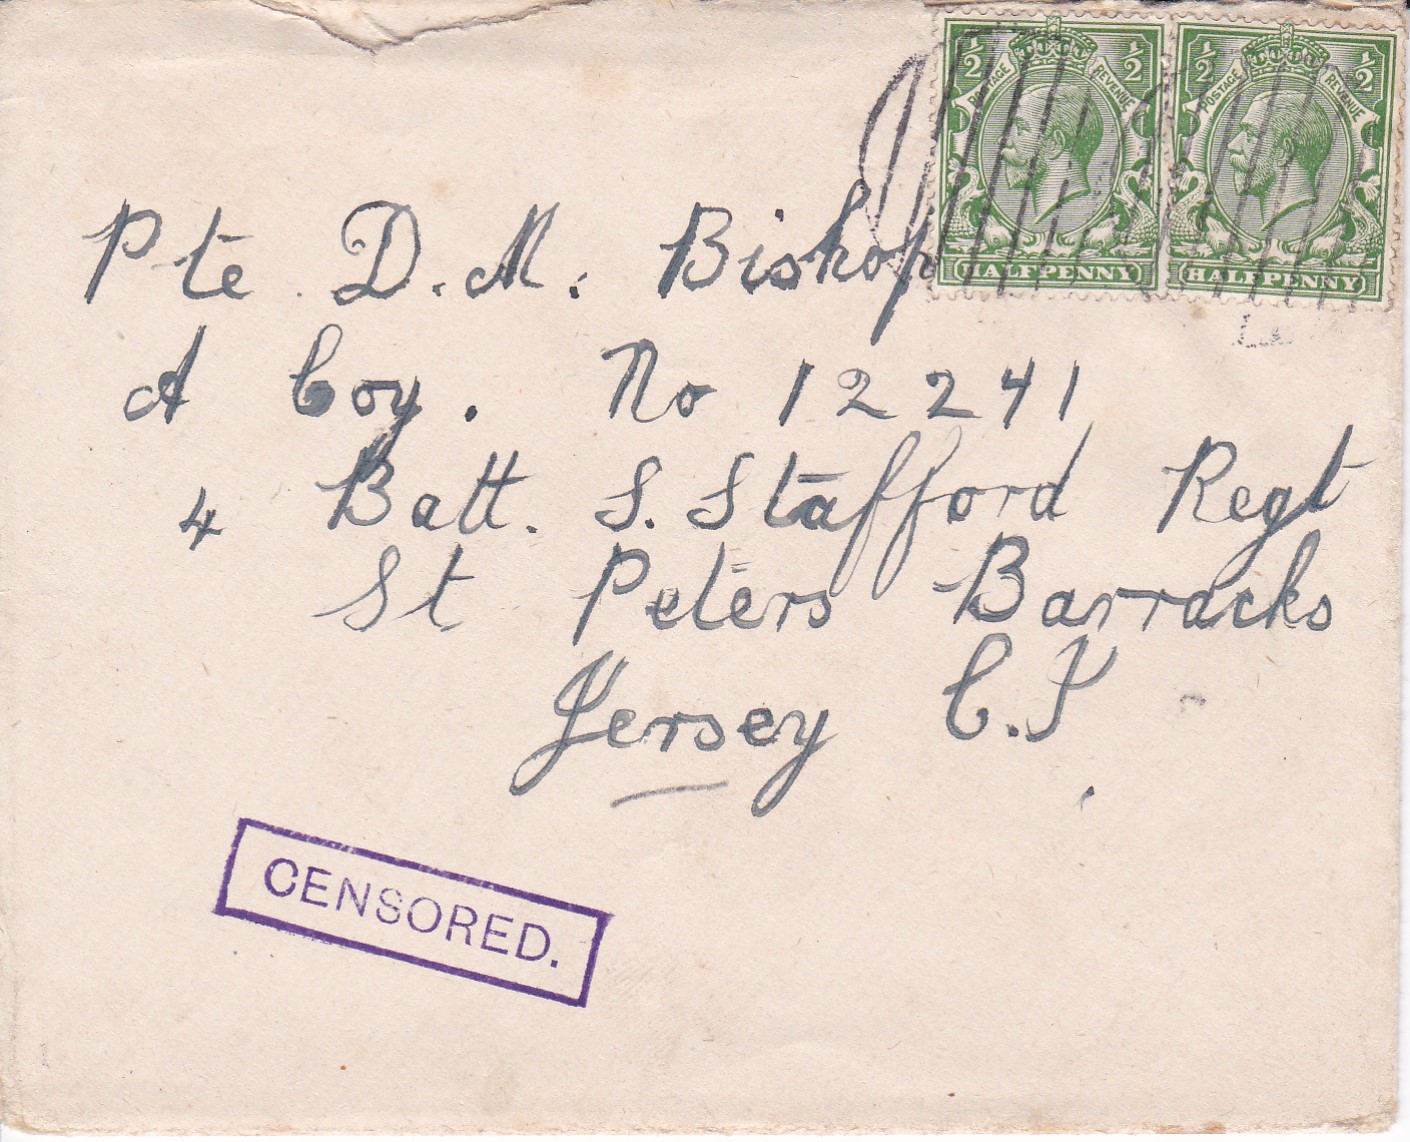 1/2 POSTAGE REVENUE 1/2
HALFPENNY
1/2 POSTAGE REVENUE 1/2
HALFPENNY
Pte D. M. Bishop
A Coy. No 12241
4 Batt. S. Stafford Regt
St Peters Barracks
Jersey C.I
CENSORED.